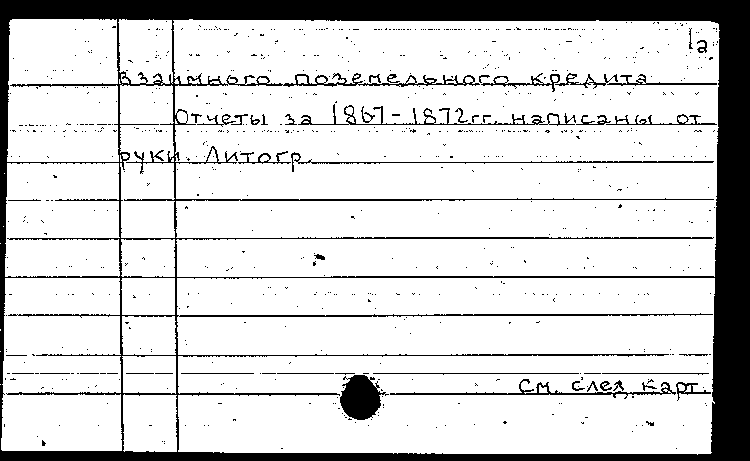 1а
взаимного поземельного кредита
Отчеты за 1867-1872гг. написаны от
руки. Литогр.
См. след. карт.